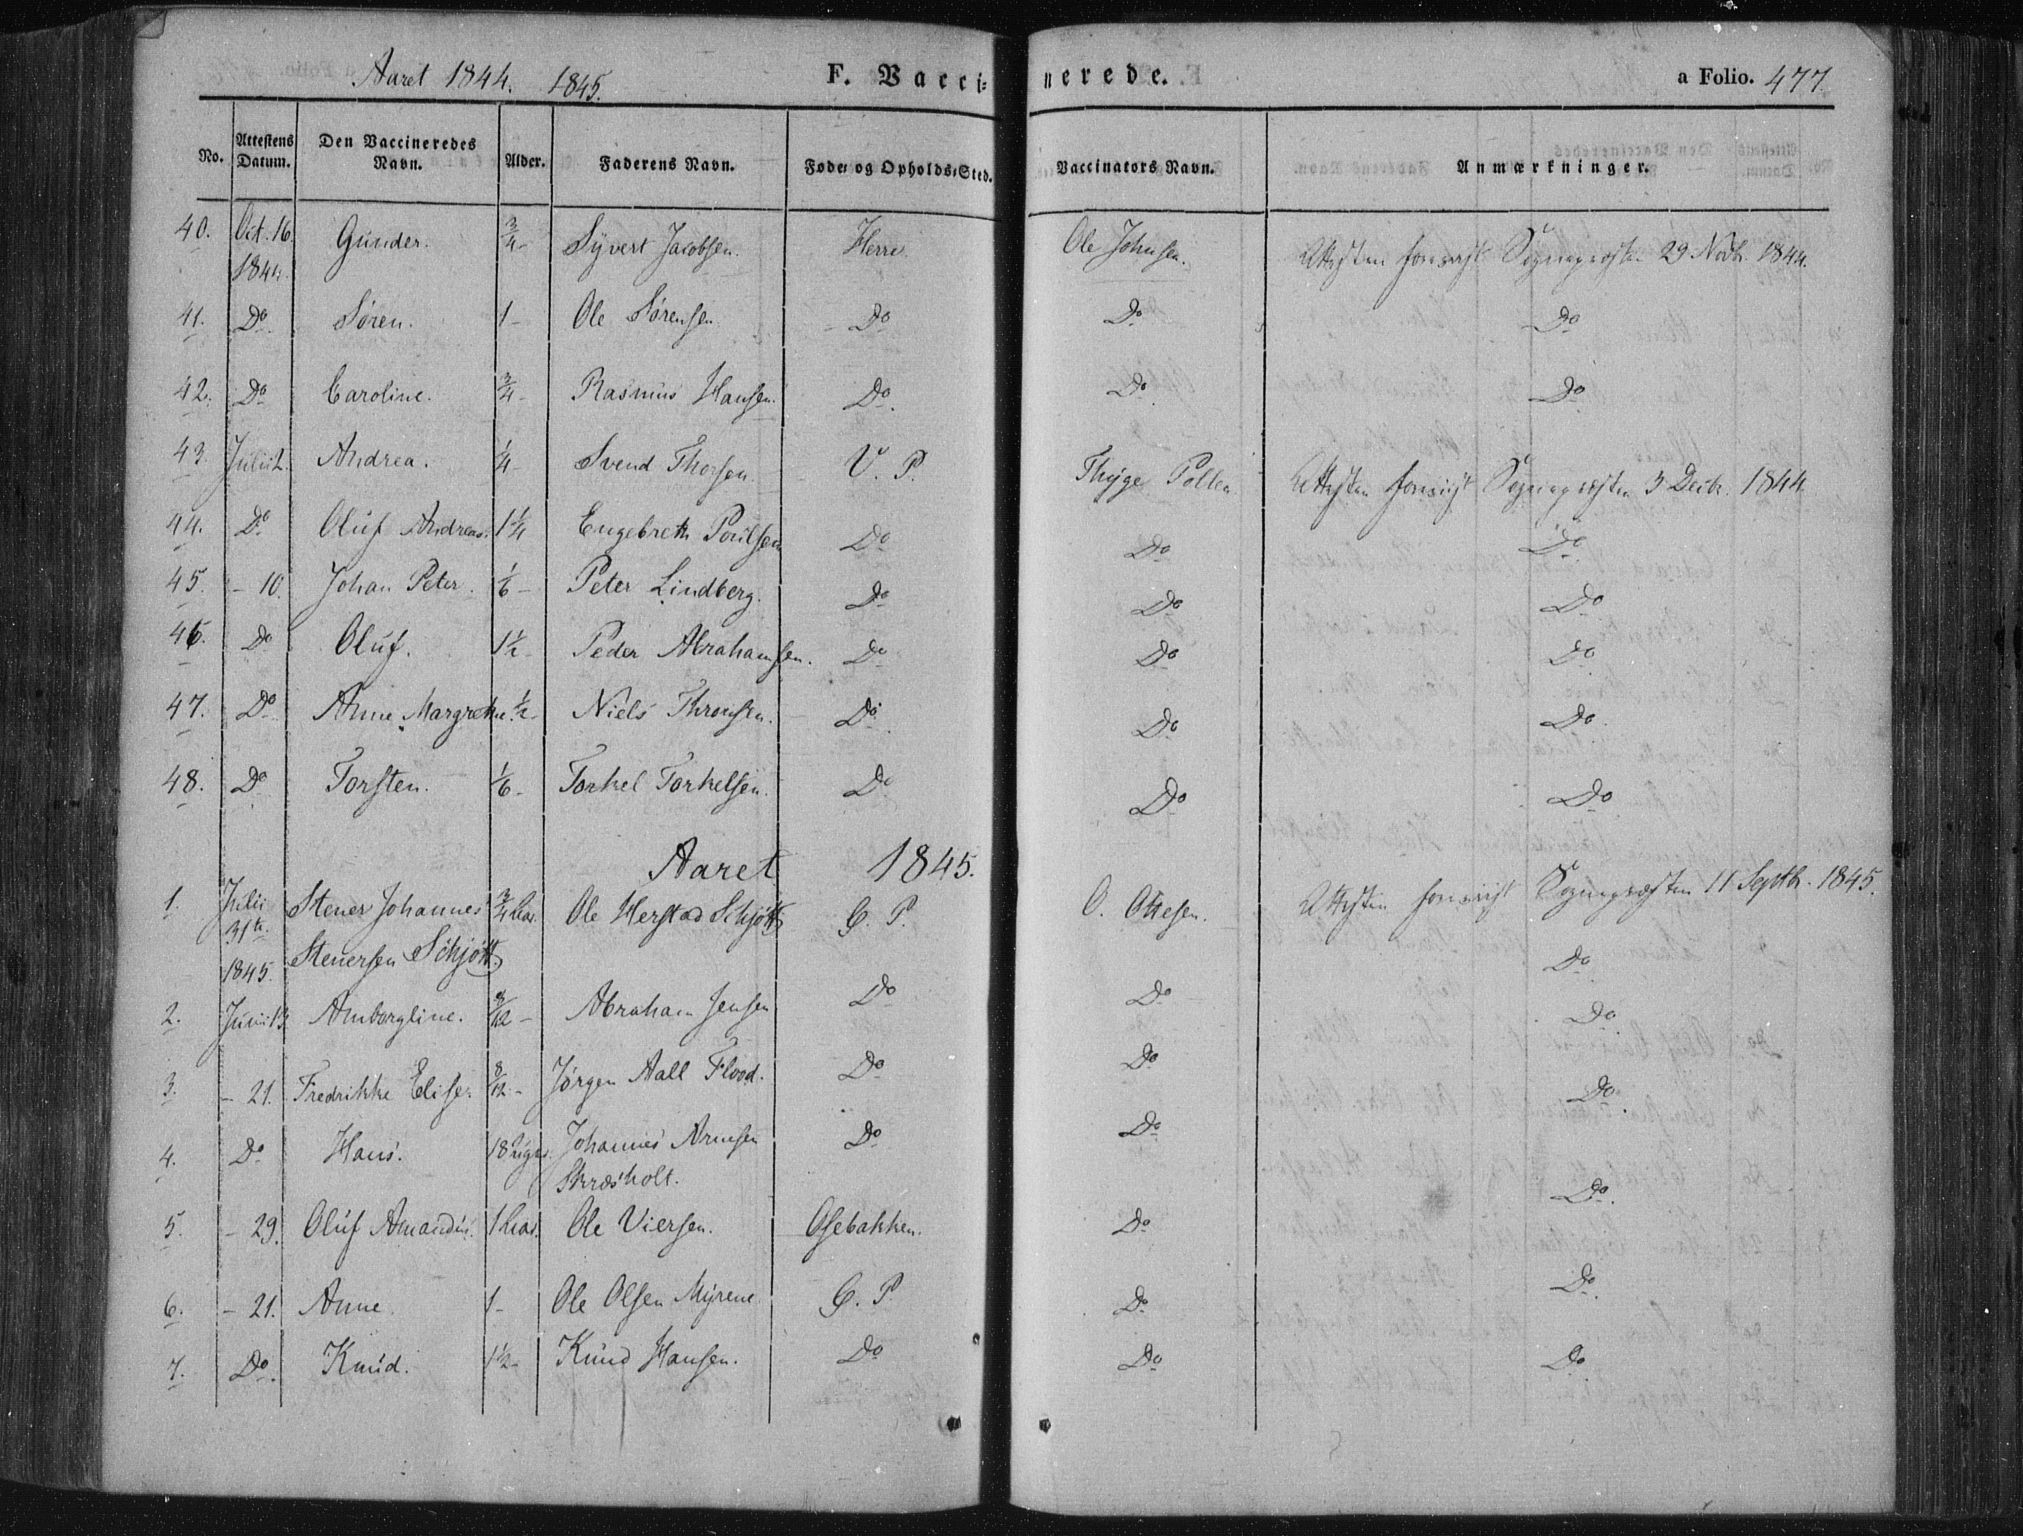 Aaret 1844. 1845. F. Vaccinerede. a Folio. 477.
No. Attestens Datum. Den Vaccineredes Navn. Alder. Faderens Navn. Føde- og Opholds-Sted. Vaccinators Navn. Anmærkninger.
40. Oct. 16 1844. Gunder. 3/4 - Syvert Jacobsen. Herre. Ole Johnsen. Attesten foreviist Sognepræsten 29 Novbr. 1844.
41. Do Søren. 1 - Ole Sørensen. Do Do Do
42. Do Caroline. 3/4 - Rasmus Hansen. Do. Do. Do
43. Julii 2. Andrea. 1/4 - Svend Thorsen V. P. Thyge Pollen Attesten foreviist Sognepræsten 3 Decbr. 1844.
44. Do Oluf Andreas. 1 1/4 Engebreth Poulsen Do Do Do
45. - 10. Johan Peter. 1/6 - Peter Lindberg. Do Do Do
46. Do Oluf. 1 1/2 Peder Abrahamsen. Do Do Do
47. Do Anne Margrethe. 1/2 - Niels Thronsen. Do Do Do
48. Do Torsten. 1/6 - Torkel Torkelsen. Do Do Do
Aaret 1845.
1. Julii 31te 1845. Stener Johannes 3/4 Aar. Ole Herstad Schjøtt G. P. O. Ottesen. Attesten foreviist Sognepræsten 11 Septbr. 1845.
Stenersen Schjøtt. Do
2. Junii 13 Amborgline. 8/12 - Abraham Jensen Do Do Do
3. - 21. Fredrikke Elise. 8/12 - Jørgen Aall Flood. Do Do Do
4. Do Hans. 18 Uger. Johannes Arnesen Do Do
Skræsholt. Do
5. - 29. Oluf Amandus. 1 Aar. Ole Viersen. Osebakken. Do
6. - 21. Anne. 1 - Ole Olsen Myrene G. P. Do Do
7. Do. Knud. 1 1/2 - Knud Hansen. Do Do Do